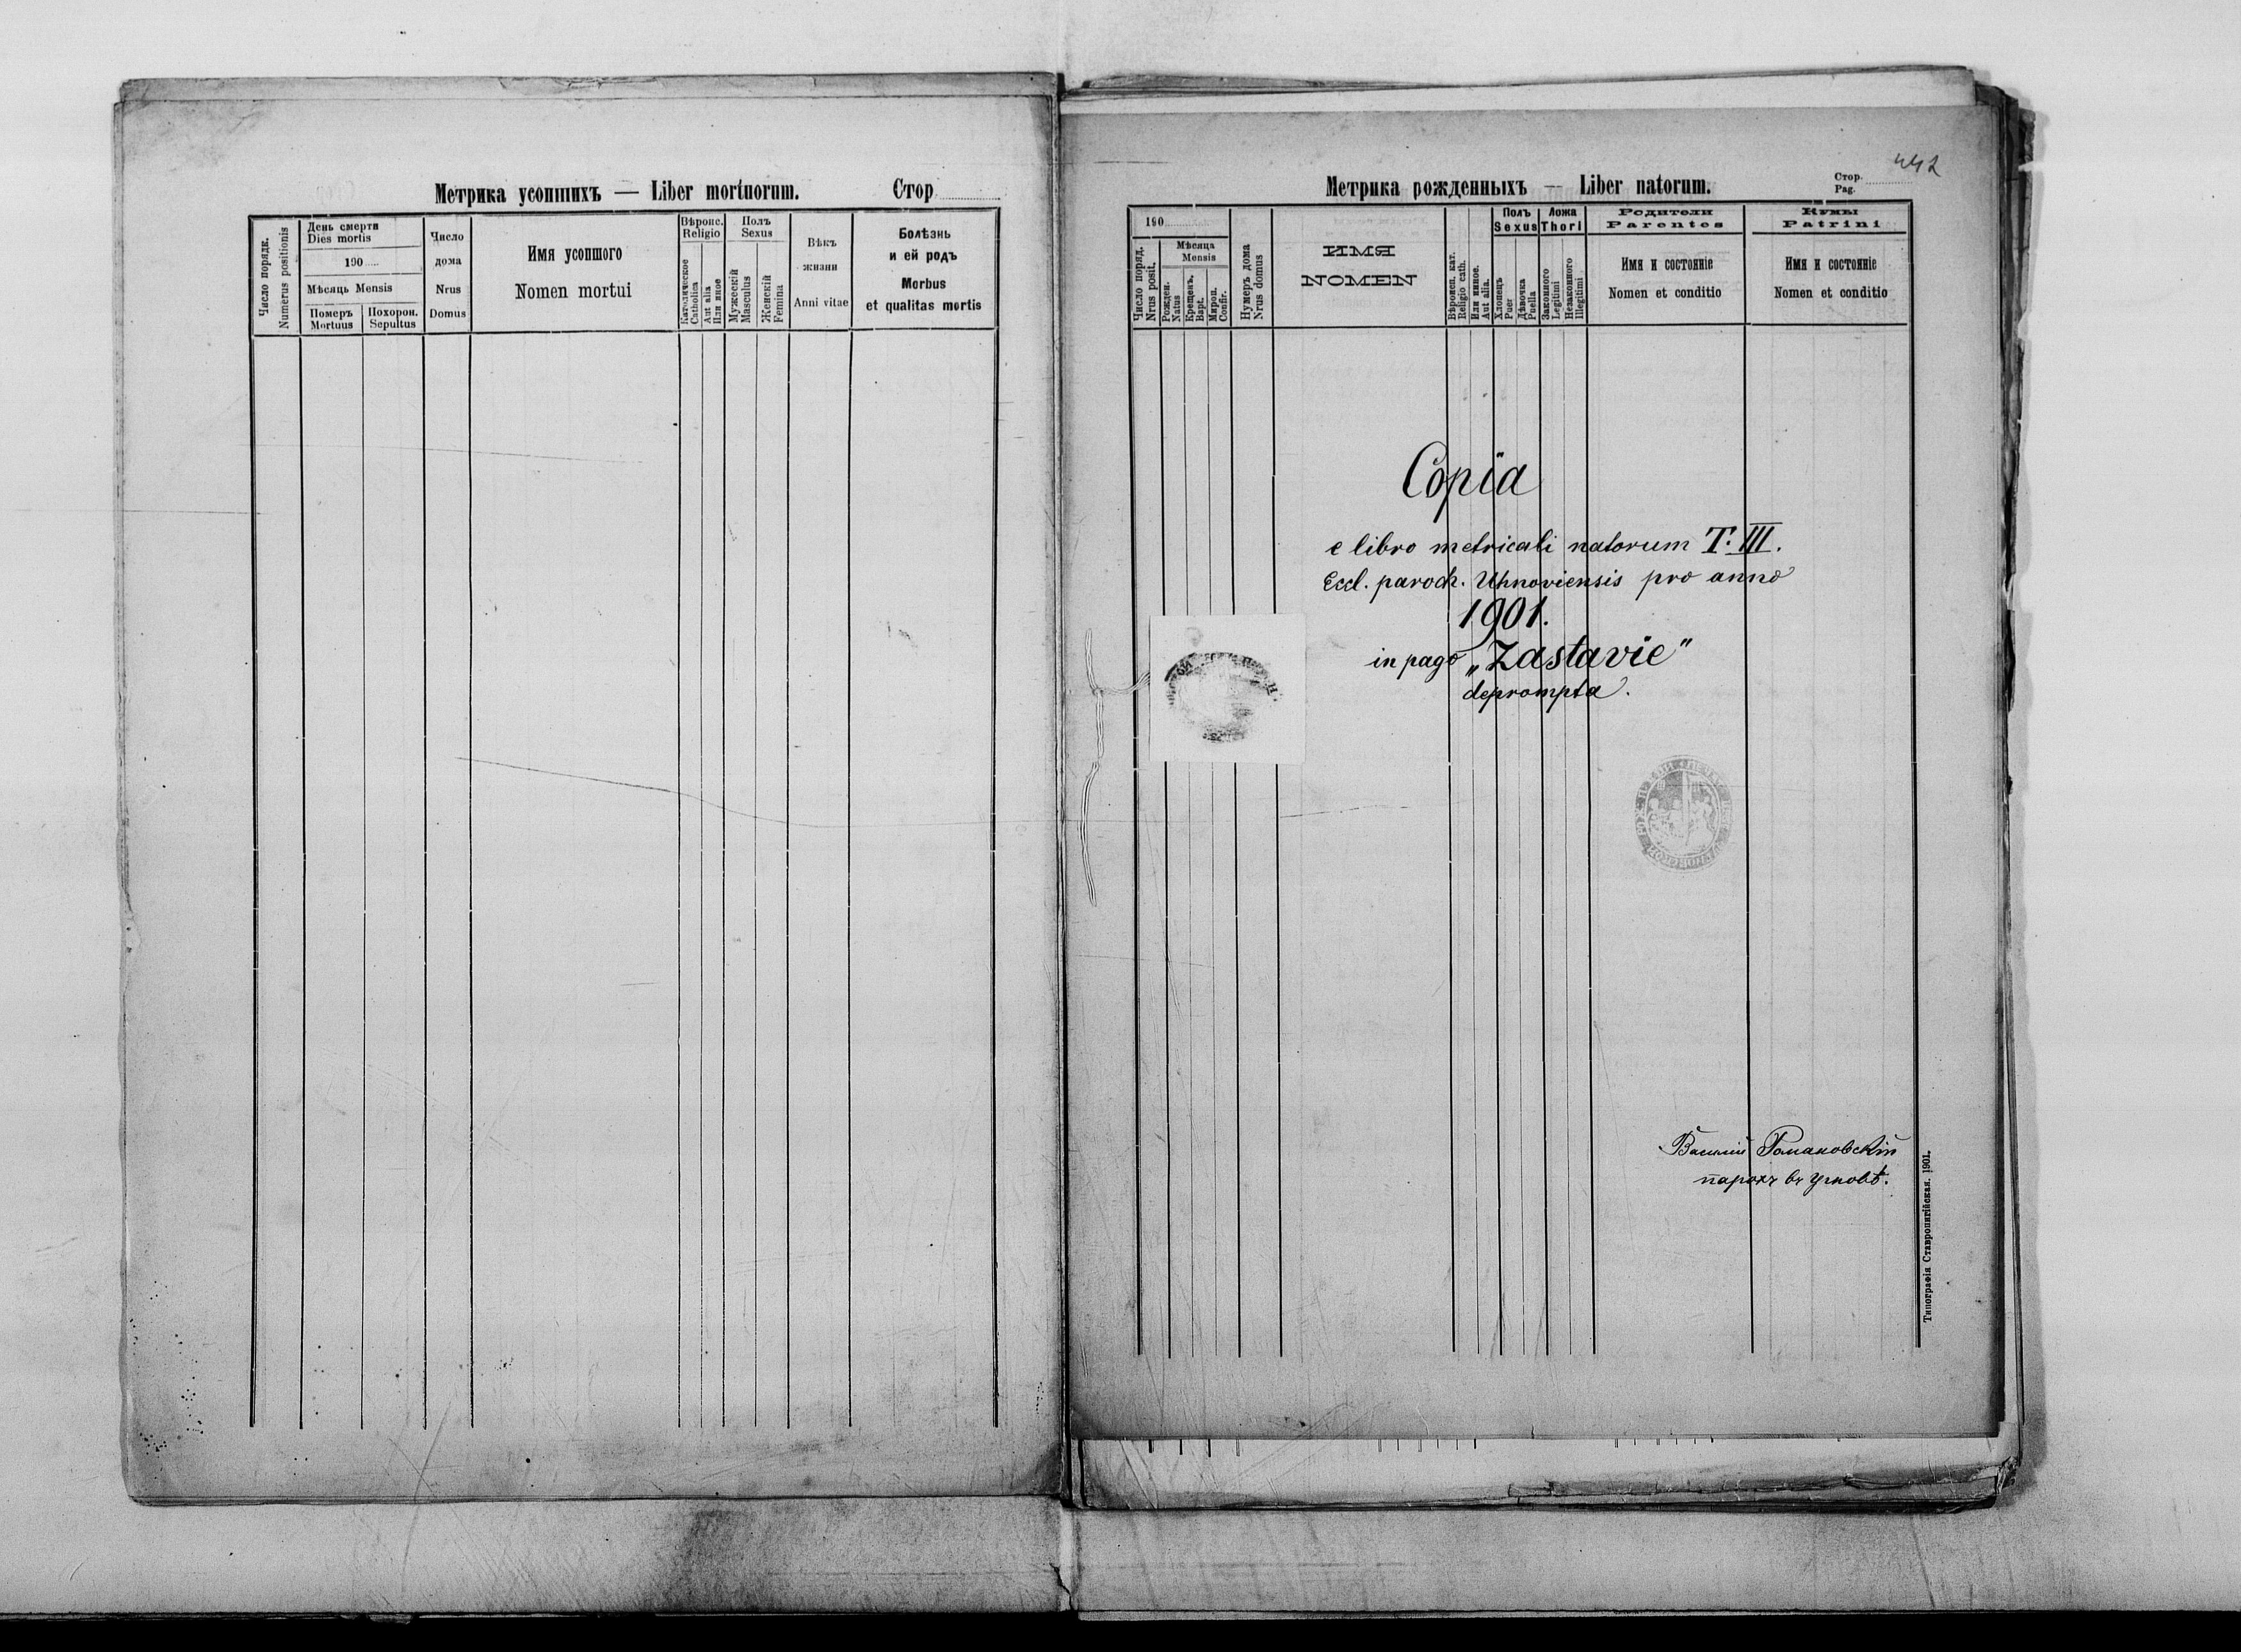 Метрика усопшихъ — Liber mortuorum.
Стор
Число порядк.
Numerus positionis
День смерти
Dies mortis
190
Мѣсяць Mensis
Померъ
Mortuus
Похорон.
Sepultus
Число
дома
Nrus
Domus
Имя усопшого
Nomen mortui
Вѣроис.
Religio
Католическое
Catholica
Aut alia
Или иное
Полъ
Sexus
Мужескій
Masculus
Женскій
Femina
Вѣкъ
жизни
Anni vitae
Болѣзнь
и ей родъ
Morbus
et qualitas mortis
442
Метрика рожденныхъ — Liber natorum.
Стор.
Pag.
190
Число поряд.
Nrus posit.
Мѣсяца
Mensis
Рожден.
Natus
Крещенъ.
Bapt.
Миров.
Confir.
Нумеръ дома
Nrus domus
ИМЯ
NOMEN
Вѣроисп. кат.
Religio cath.
Или иное.
Aut alia.
Полъ
Sexus
Хлопець
Puer
Дѣвочка
Puella
Ложа
Thori
Законного
Legitimi
Незаконного
Illegitimi
Родители
Parentes
Имя и состояніе
Nomen et conditio
Кумы
Patrini
Имя и состояніе
Nomen et conditio
Copia
e libro metricali natorum T. III.
Eccl. paroch. Uhnoviensis pro anno
1901.
in pago „Zastavie"
deprompta.
Василий Романовскій
парохъ въ Угновѣ.
Типографія Ставропигійская. 1901.